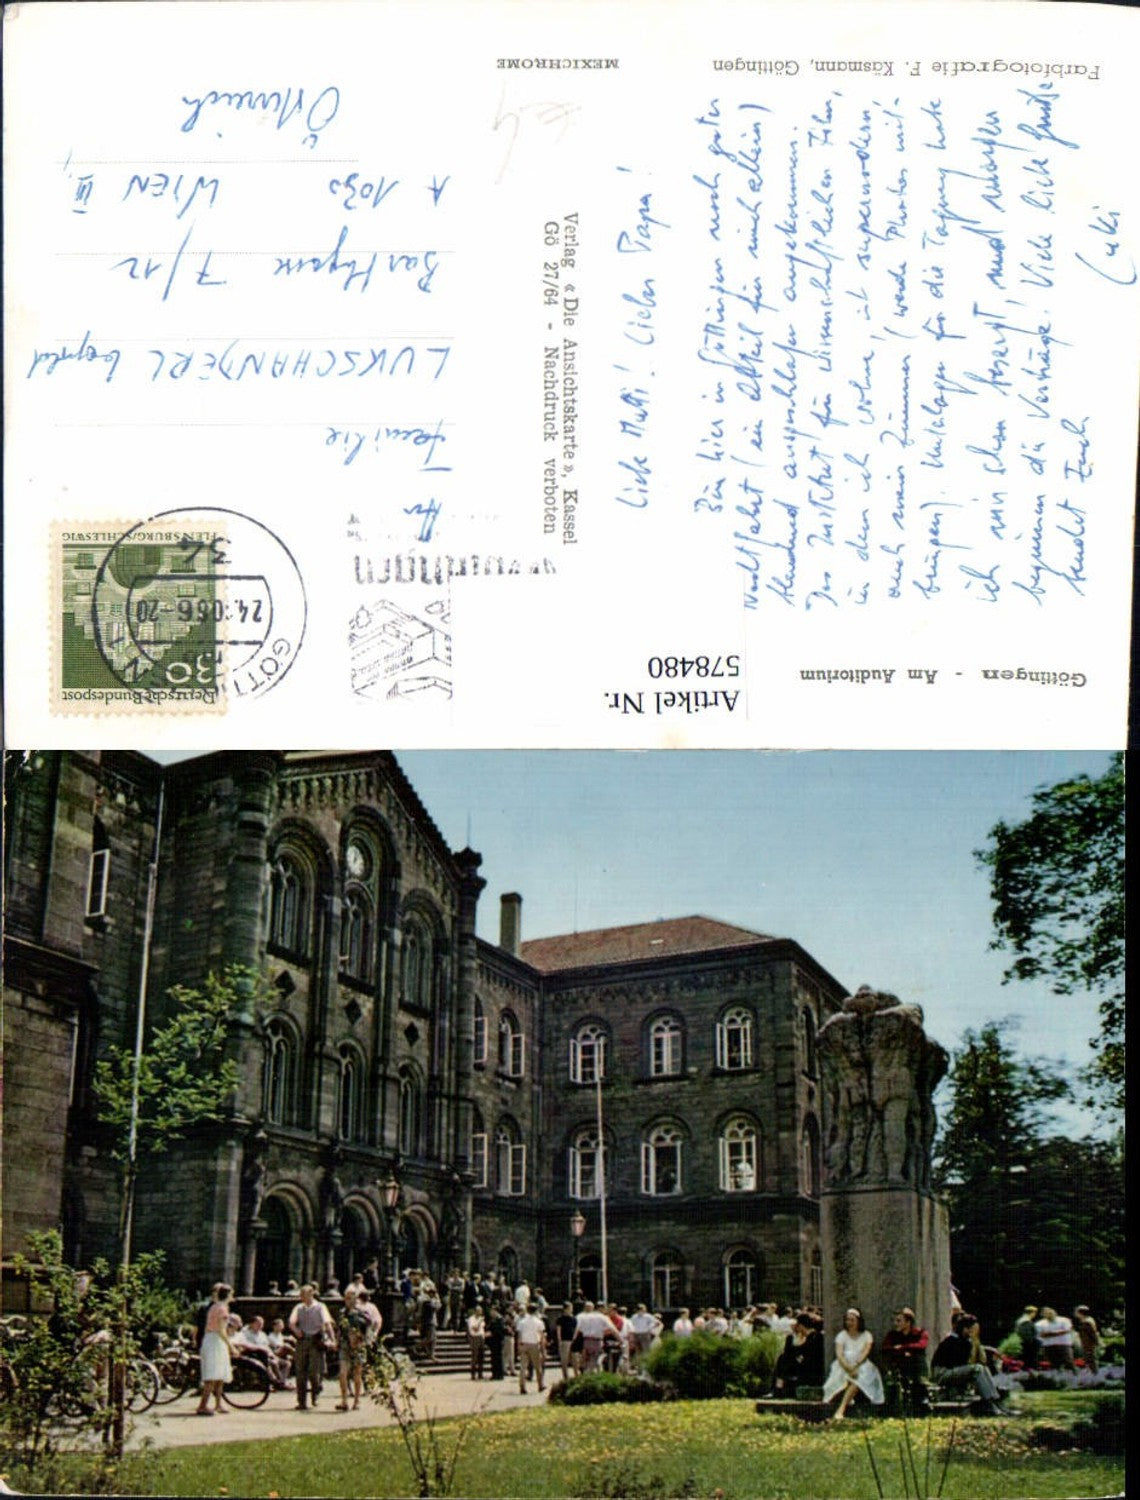 Göttingen - Am Auditorium
Farbfotografie F. Käsmann, Göttingen
MEXICHROME
Verlag « Die Ansichtskarte », Kassel
Gö 27/64 - Nachdruck verboten
Artikel Nr.
578480
Liebe Mutti! Lieber Papa!
Bin hier in Göttingen nach guter
Nachtfahrt (ein Abteil für mich allein)
ausgeschlafen angekommen.
Das Institut für wissenschaftlichen Film,
in dem ich wohne, ist supermodern,
auch mein Zimmer (werde Photos mit-
bringen). Unterlagen für die Tagung habe
ich mir schon besorgt und morgen
beginnen die Vorträge! Viele liebe Grüße
sendet Euch
An
Familie
LUKSCHANDERL Leopold
7/12
A 1030 WIEN III,
Österreich
Deutsche Bundespost
30
FLENSBURG/SCHLESWIG
GÖTTINGEN
34
24.10.66-20